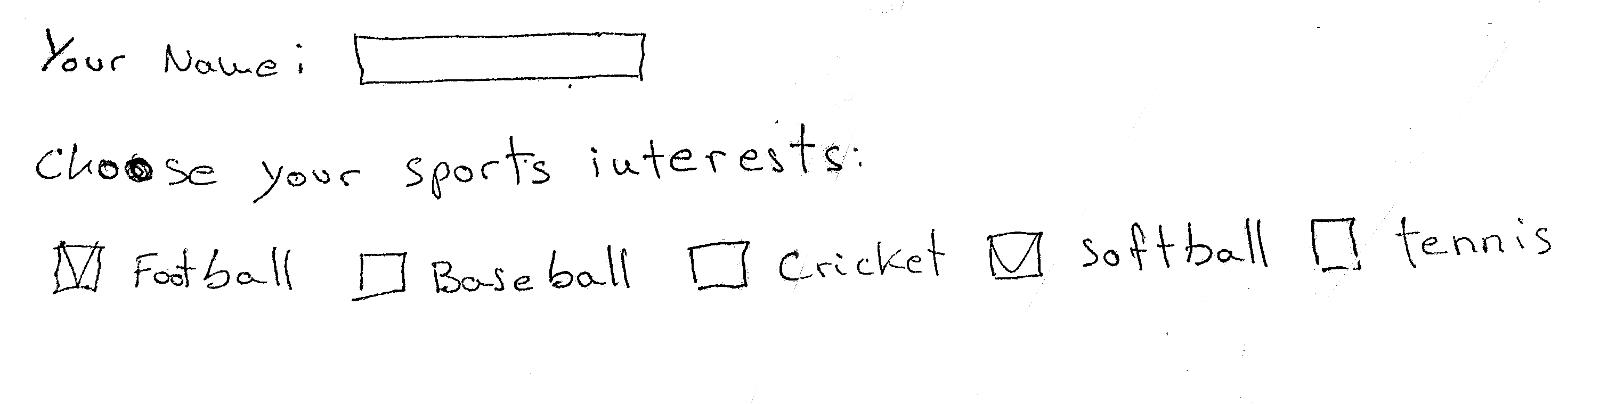 Your Name:
Choose your sports interests:
☑ Football ☐ Baseball ☐ Cricket ☑ softball ☐ tennis